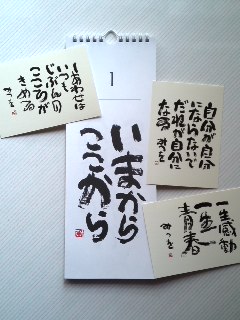 しあわせは
いつも
じぶんの
こころが
きめる
みつを
1
いまから
ここから
自分が自分
にならないで
だれが自分に
なる
みつを
一生感動
一生青春
みつを